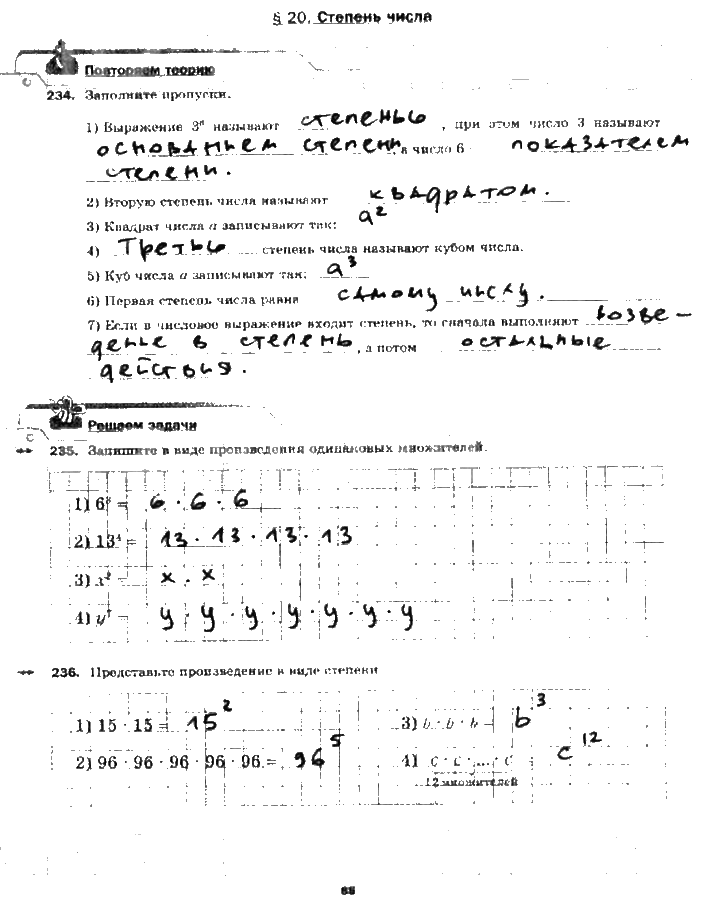 § 20. Степень числа
Повторяем теорию
234. Заполните пропуски.
1) Выражение 3⁶ называют степенью, при этом число 3 называют
основаньем степени, а число 6 показателем
степени.
2) Вторую степень числа называют квадратом.
3) Квадрат числа a записывают так: a²
4) Третью степень числа называют кубом числа.
5) Куб числа a записывают так: a³
6) Первая степень числа равна самому числу.
7) Если в числовое выражение входит степень, то сначала выполняют возве-
денье в степень, а потом остальные
действия.
Решаем задачи
235. Запишите в виде произведения одинаковых множителей.
1) 6³ = 6 · 6 · 6
2) 13⁴ = 13 · 13 · 13 · 13
3) x² = x · x
4) y⁷ = y · y · y · y · y · y · y
236. Представьте произведение в виде степени
1) 15 · 15 = 15² 3) b · b · b = b³
2) 96 · 96 · 96 · 96 · 96 = 96⁵ 4) c · c · ... · c = c¹²
12 множителей